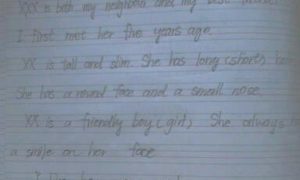 XXX is both my neighbour and my best
I first met her five years ago.
XX is tall and slim. She has long (short)
She has a round face and a small nose.
XX is a friendly boy (girl) She always
a smile on her face